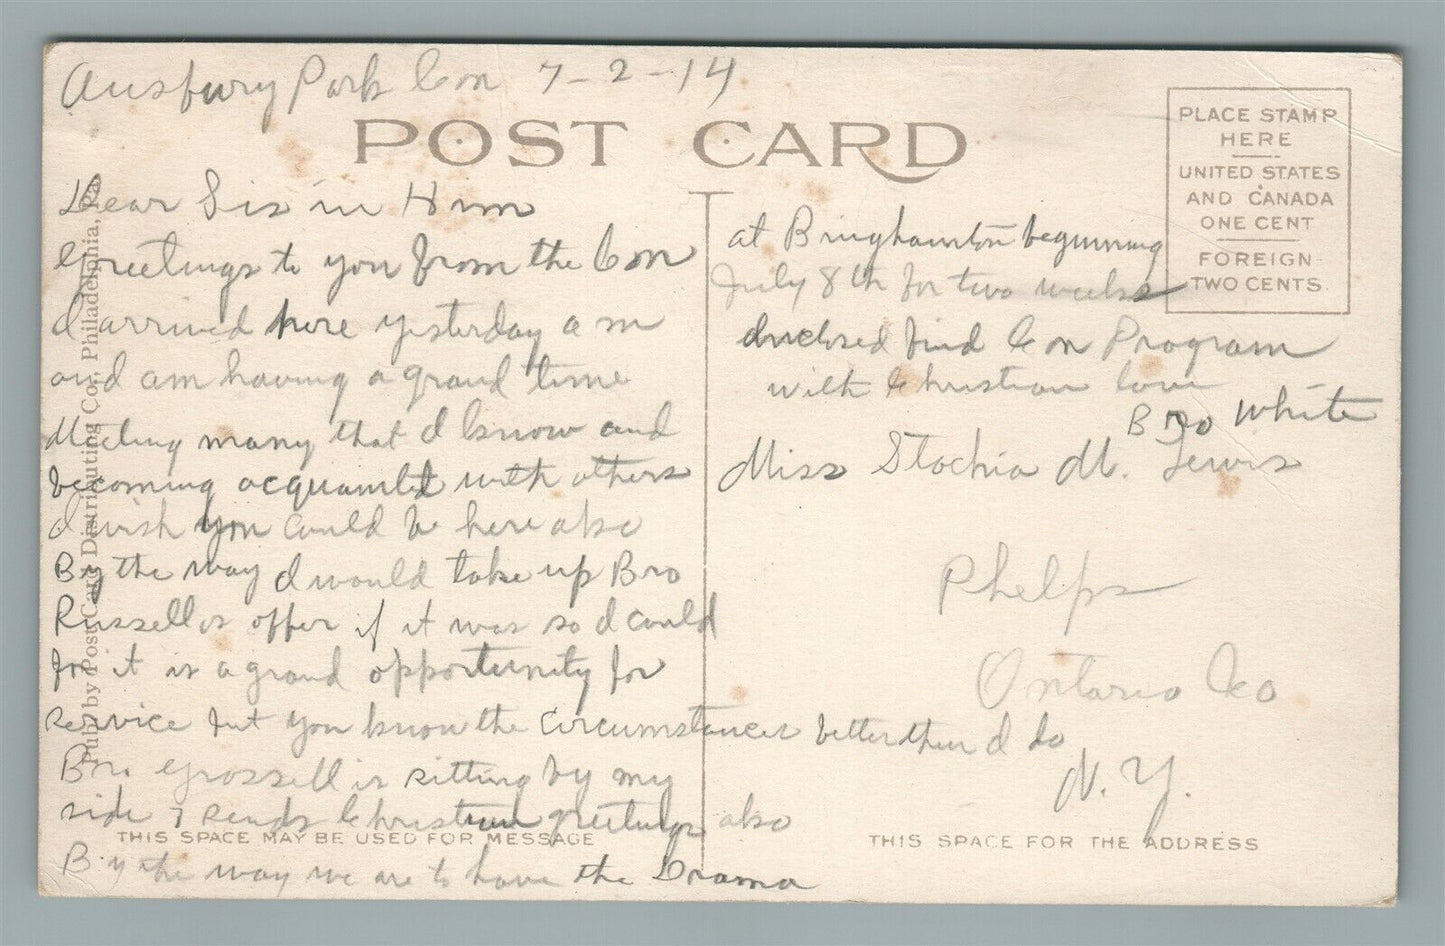 Ausbury Park Con 7-2-14
POST CARD
PLACE STAMP
HERE
UNITED STATES
AND CANADA
ONE CENT
FOREIGN-
TWO CENTS.
Dear Sis in Him
Greetings to you from the Con
I arrived here yesterday a m
and am having a grand time
Meeting many that I know and
becoming acquainted with others
I wish you could be here also
By the way I would take up Bro
Russells offer if it was so I could
for it is a grand opportunity for
service but you know the circumstances better than I do
Bro. Grossell is sitting by my
side & sends Christian greetings also
By the way we are to have the Drama
at Binghamton beginning
July 8th for two weeks
Inclosed find Con Program
with Christian love
Bro White
Miss Stachia M. Lewis
Phelps
Ontario Co
N. Y.
THIS SPACE MAY BE USED FOR MESSAGE
THIS SPACE FOR THE ADDRESS
Pub. by Post Card Distributing Co., Philadelphia, Pa